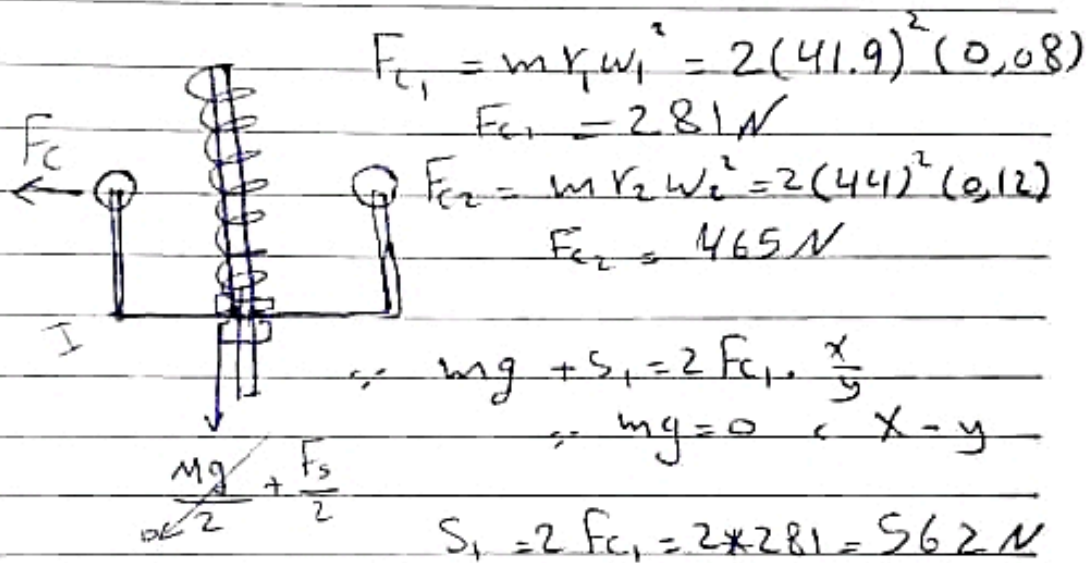 F_{c_1} = m r_1 ω_1^2 = 2(41.9)^2 (0,08)
F_{c_1} = 281 N
F_c
F_{c_2} = m r_2 ω_2^2 = 2(44)^2 (0,12)
F_{c_2} = 465 N
I
∵ mg + S_1 = 2 F_{c_1} . x/y
∵ mg = 0 ، x = y
Mg/2 + F_s/2
S_1 = 2 F_{c_1} = 2*281 = 562 N